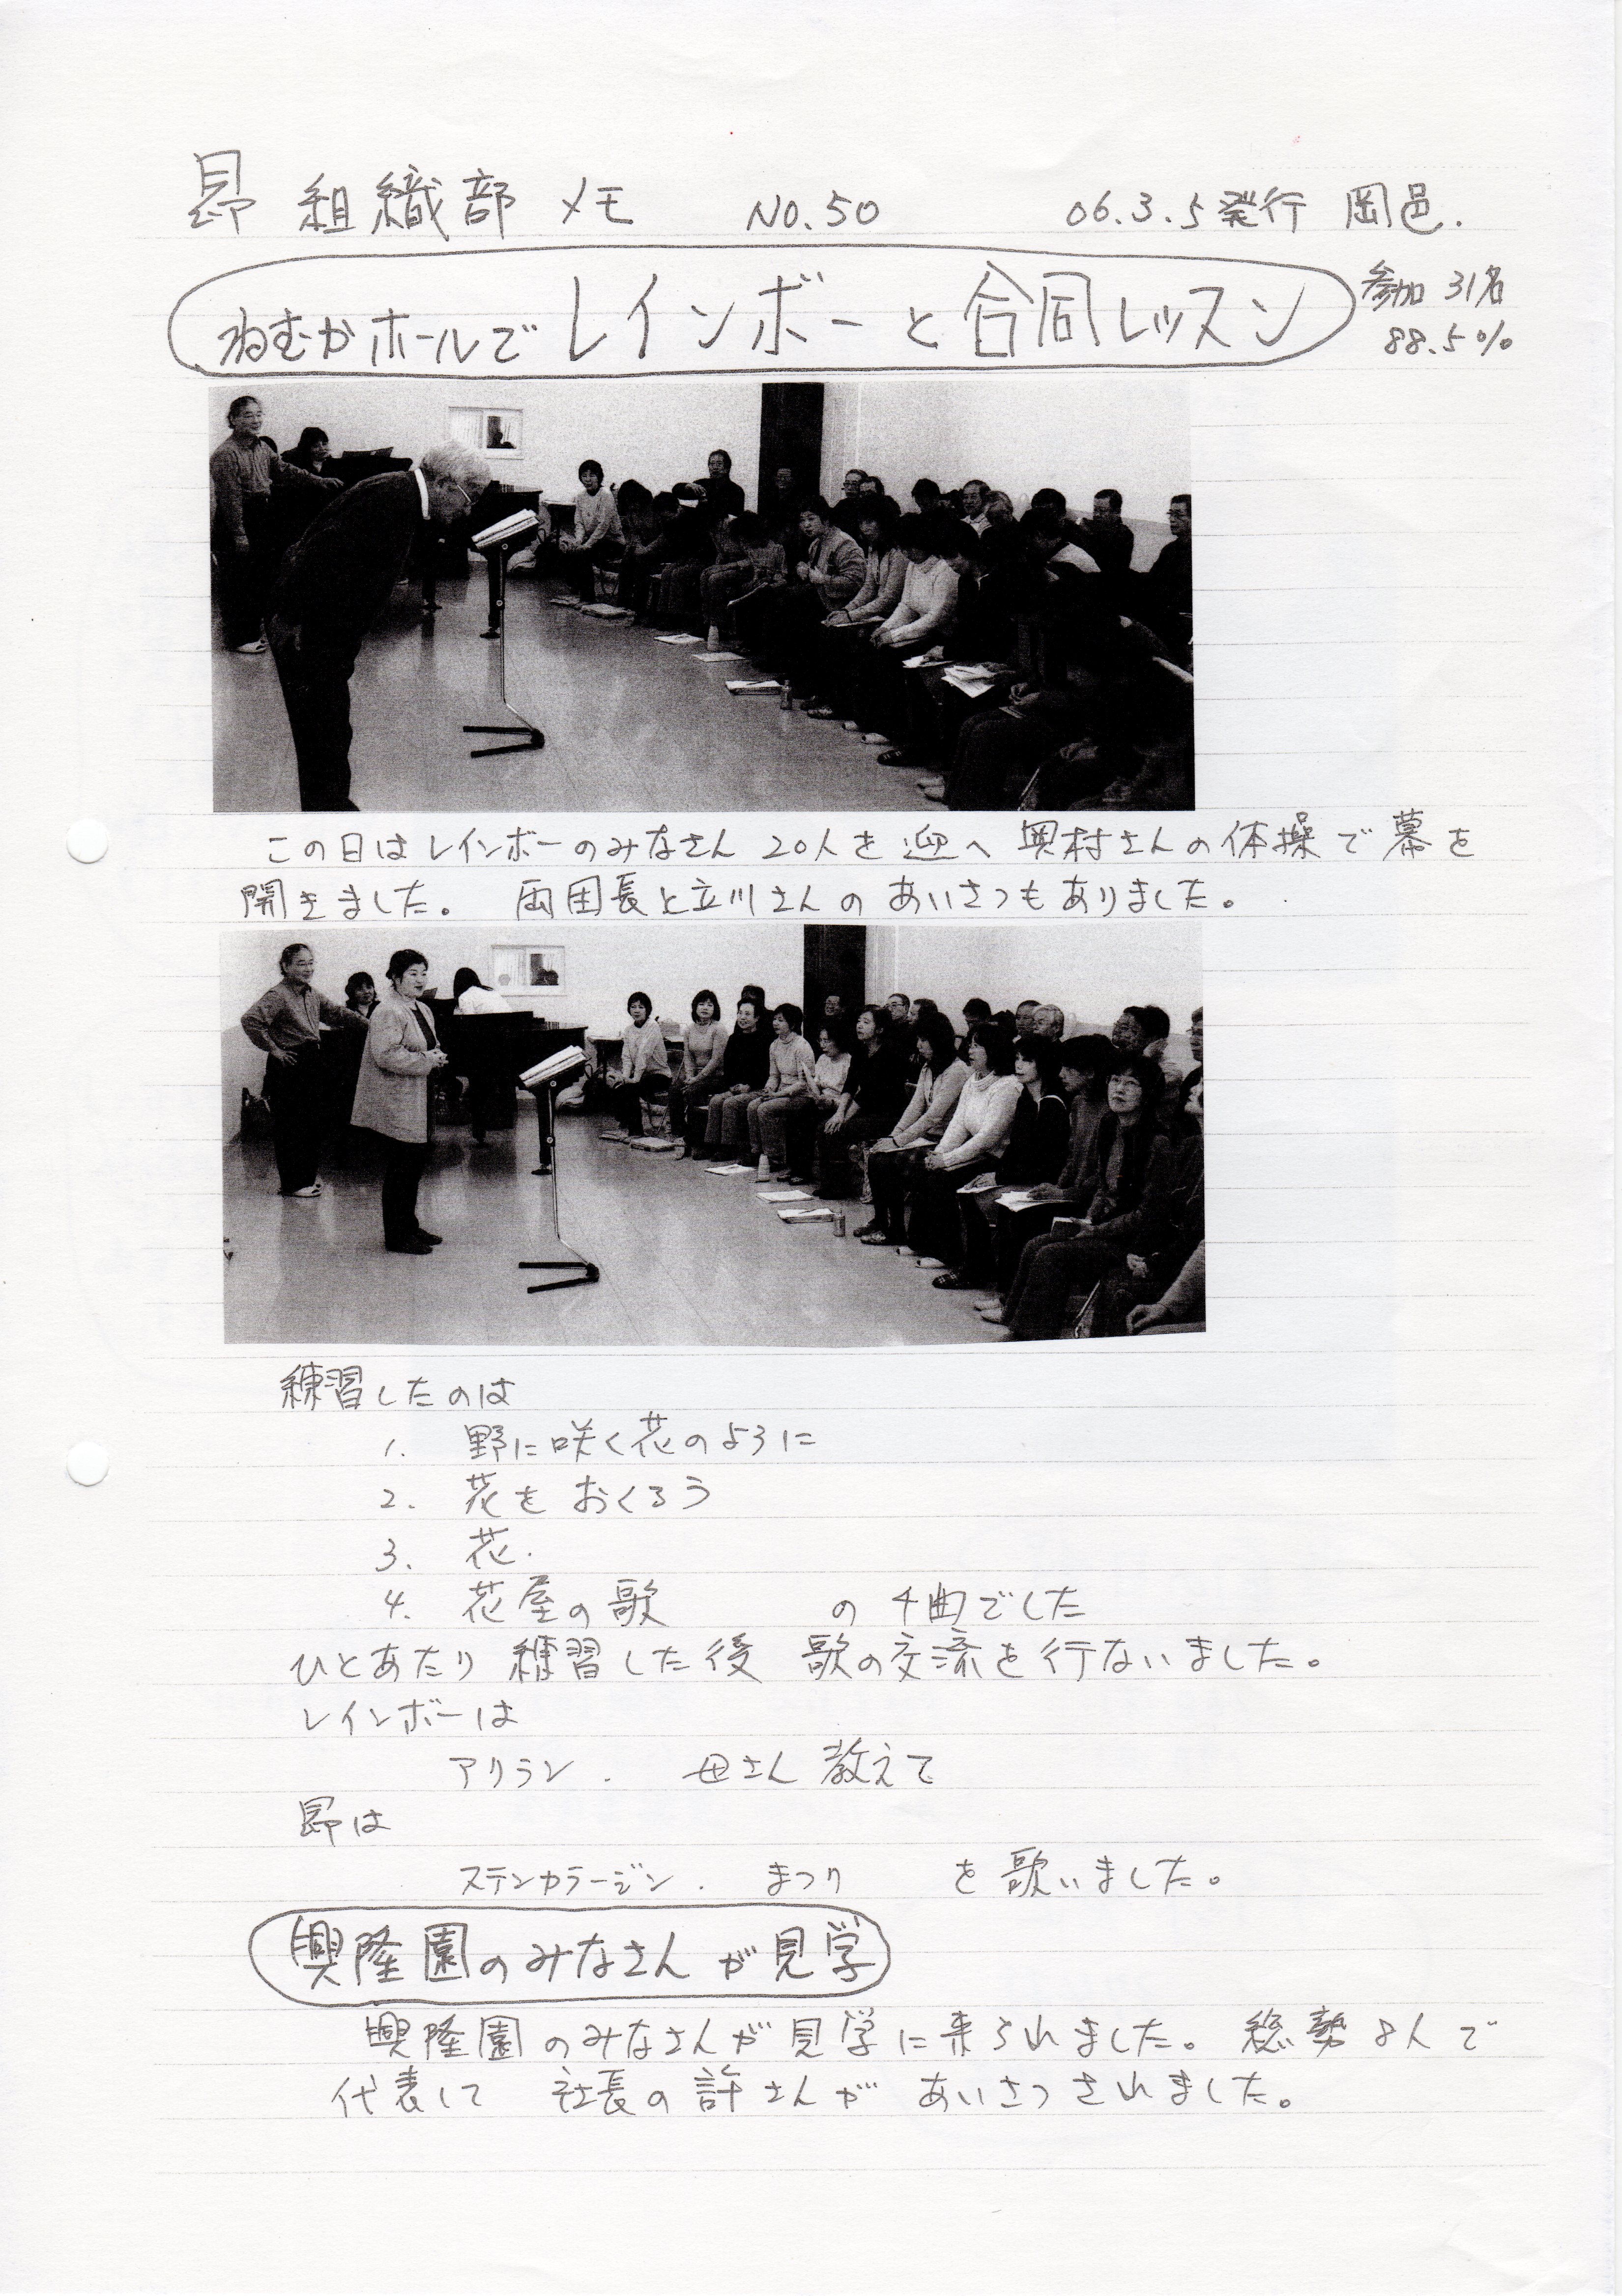 昴 組織部 メモ NO.50 06.3.5発行 岡邑.
ねむかホールでレインボーと合同レッスン
参加 31名
88.5%
この日はレインボーのみなさん 20人を 迎へ 奥村さんの体操で幕を
開きました。 両団長と立川さんの あいさつもありました。
練習したのは
1. 野に咲く花のように
2. 花を おくろう
3. 花.
4. 花屋の歌 の 4曲でした
ひとあたり 練習した後 歌の交流を行ないました。
レインボーは
アリラン . 母さん 教えて
昴は
ステンカラージン . まつり を 歌いました。
興隆園のみなさんが見学
興隆園のみなさんが見学に来られました。 総勢 8人で
代表して 社長の 許さんが あいさつ されました。